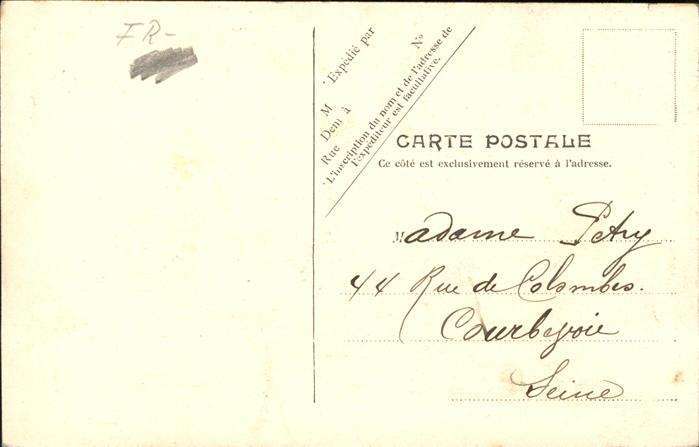 FR-
Expédié par
M
Demt à
Rue
No
L'inscription du nom et de l'adresse de
l'expéditeur est facultative.
CARTE POSTALE
Ce côté est exclusivement réservé à l'adresse.
Madame Petry
44 Rue de Colombes.
Courbevoie
Seine